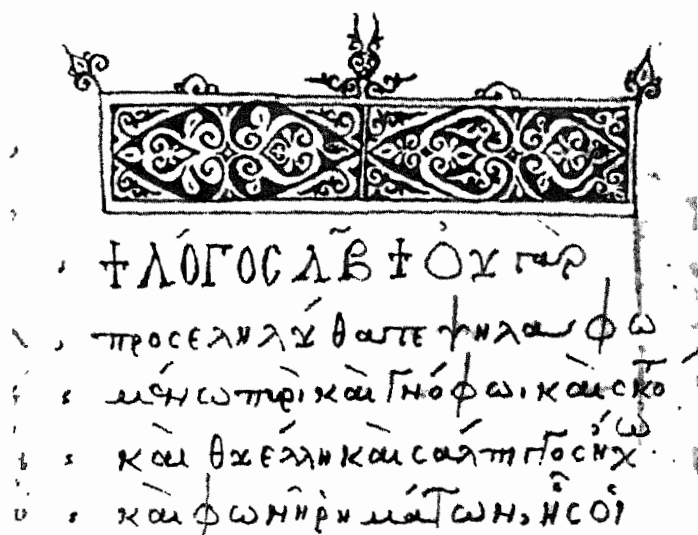 † ΛΌΓΟC ΛΒ † Οὐ γὰρ
προσεληλύθατε ψηλαφω
μένω πυρὶ καὶ γνόφωι, καὶ σκότω
καὶ θυέλλη καὶ σάλπιγγος ἤχω
καὶ φωνῆ ῥημάτων, ἧς οἱ